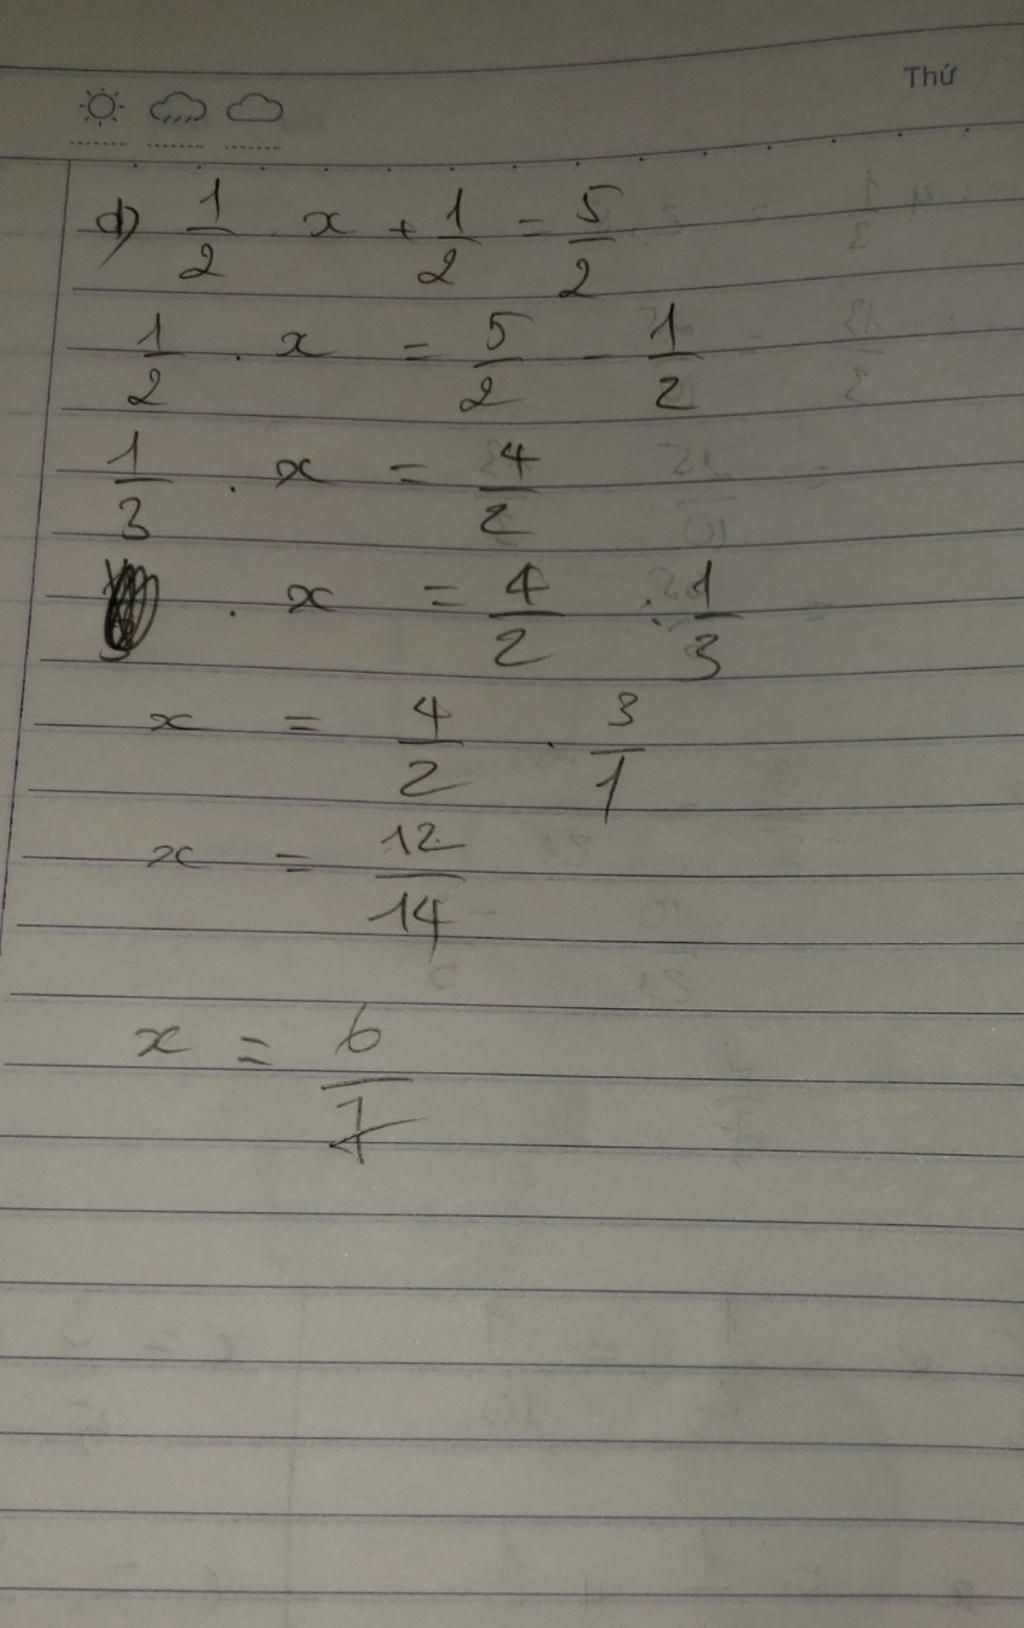 Thứ
d) 1/2 . x + 1/2 = 5/2
1/2 . x = 5/2 - 1/2
1/3 . x = 4/2
. x = 4/2 : 1/3
x = 4/2 . 3/1
x = 12/14
x = 6/7